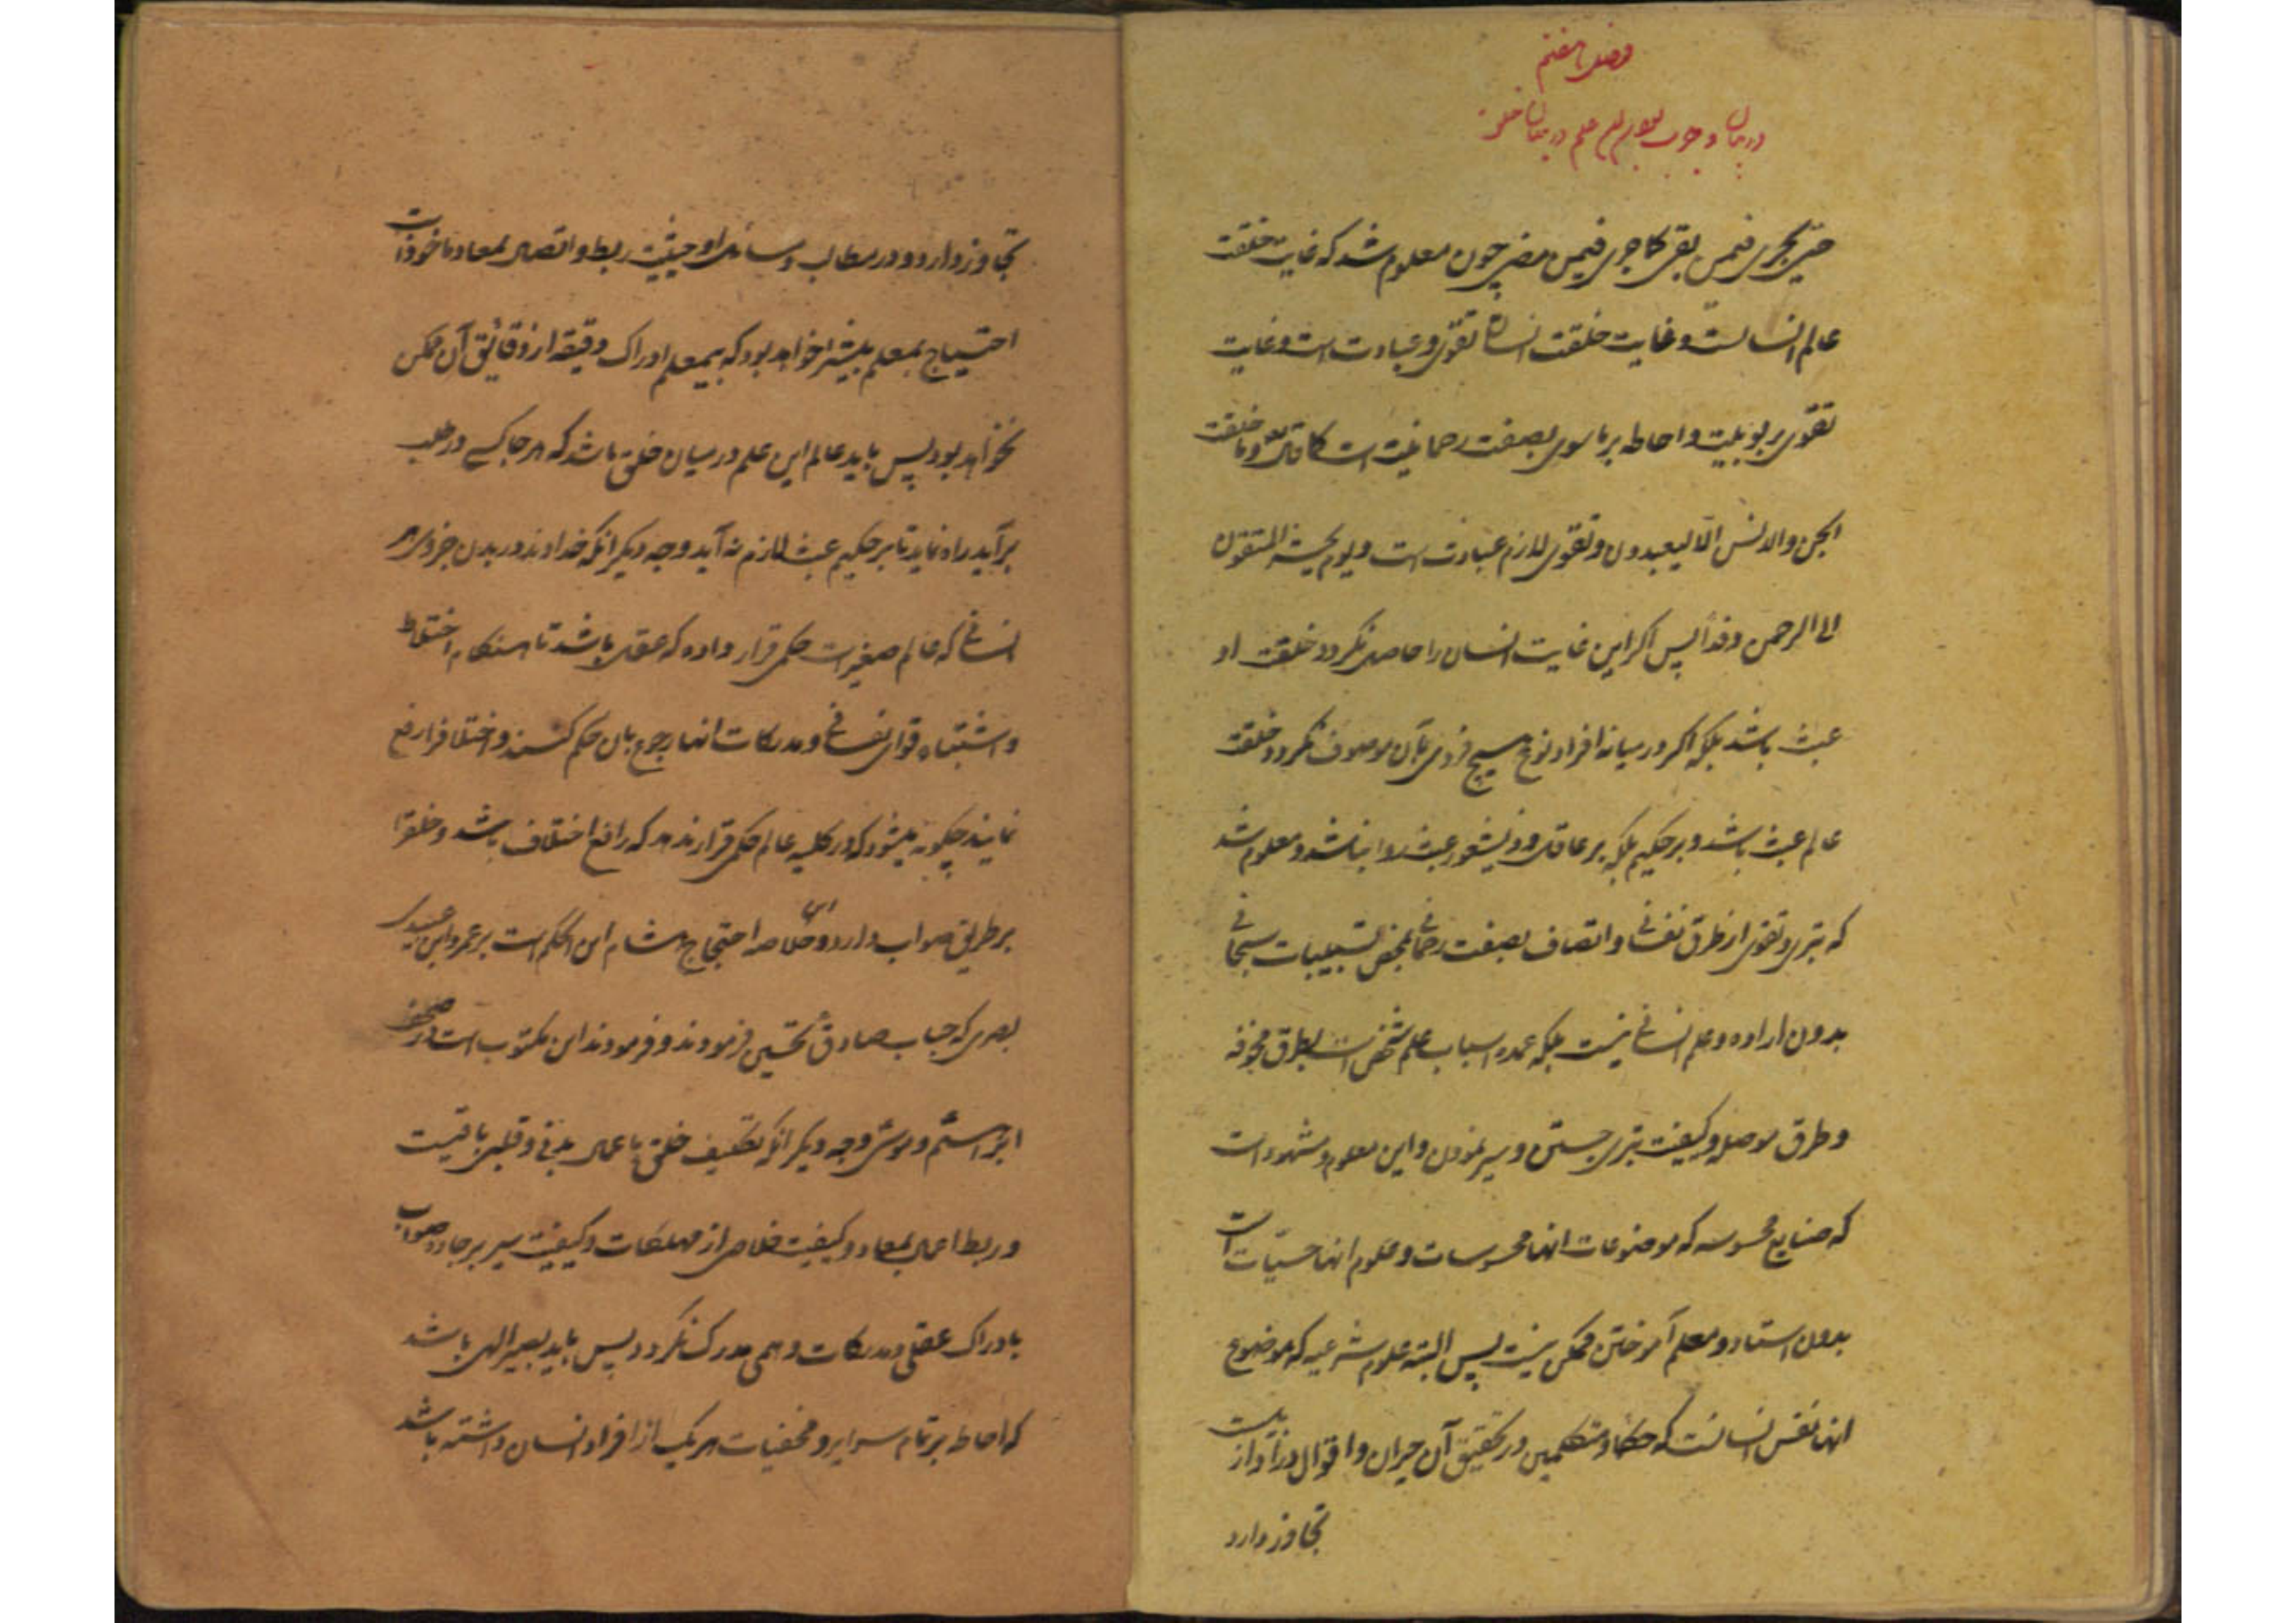 فصل هفتم
در بیان وجوب بودن عالم علم در میان خلق
حتی یجری فیمن بقی کما جری فیمن مضی چون معلوم شد که غایت خلقت
عالم انسانست و غایت خلقت انسان تقوی و عبادت است و غایت
تقوی ربوبیت و احاطه بر ما سوی بصفت رحمانیت است کما قال تع و ما خلقت
الجن والانس الا لیعبدون و تقوی لازم عبادت است و یوم نحشر المتقون
الی الرحمن وفداً پس اگر این غایت انسان را حاصل نگردد خلقت او
عبث باشد بلکه اگر در میانه افراد نوع هیچ فردی بآن موصوف نگردد خلقت
عالم عبث باشد و بر حکیم بلکه بر عاقل و ذیشعور عبث روا نباشد و معلوم شد
که تبری و تقوی از طرق نفسانی و اتصاف بصفت رحمانی بمحض تسبیبات سبحانی
بدون اراده و علم انسانی نیست بلکه عمده اسباب علم شخص است بطرق مخوفه
و طرق موصله و کیفیت تبری جستن و سیر نمودن و این معلوم و مشهود است
که صنایع محسوسه که موضوعات انها محسوسات و علوم انها حسیات است
بدون استاد و معلم آموختن ممکن نیست پس البته علوم شرعیه که موضوع
انها نفس انسانست که حکما و متکلمین در تحقیق آن حیران و اقوال در آن از
تجاوز دارد
تجاوز دارد و در مطالب و مسائل او حیثیت ربط و اتصال بمعاد ماخوذ است
احتیاج بمعلم بیشتر خواهد بود که بیمعلم ادراک دقیقه از دقائق آن ممکن
نخواهد بود پس باید عالم این علم در میان خلق باشد که هر جا کسی در طلب
برآید راه نماید تا بر حکیم عبث لازم نه آید وجه دیگر انکه خداوند در بدن جزوی هر
انسانی که عالم صغیر است حکمی قرار داده که عقل باشد تا هنگام اختلاط
و اشتباه قوای نفسانی و مدرکات انها رجوع بان حکم کنند و اختلافرا رفع
نمایند چگونه میشود که در کلیه عالم حکمی قرار ندهد که رافع اختلاف باشد و خلقرا
بر طریق صواب دارد و این خلاصه احتجاج هشام ابن الحکم است بر عمرو ابن عبید
بصری که جناب صادق تحسین فرمودند و فرمودند این مکتوب است در صحف
ابراهیم و موسی وجه دیگر انکه تکلیف خلق باعمال بدنی و قلبی باقیست
و ربط اعمال بمعاد و کیفیت خلاصی از مهلکات و کیفیت سیر بر جاده صواب
بادراک عقلی و مدرکات وهمی مدرک نگردد پس باید بصیر الهی باشد
که احاطه بر تمام سرایر و مخفیات هر یک از افراد انسان داشته باشد